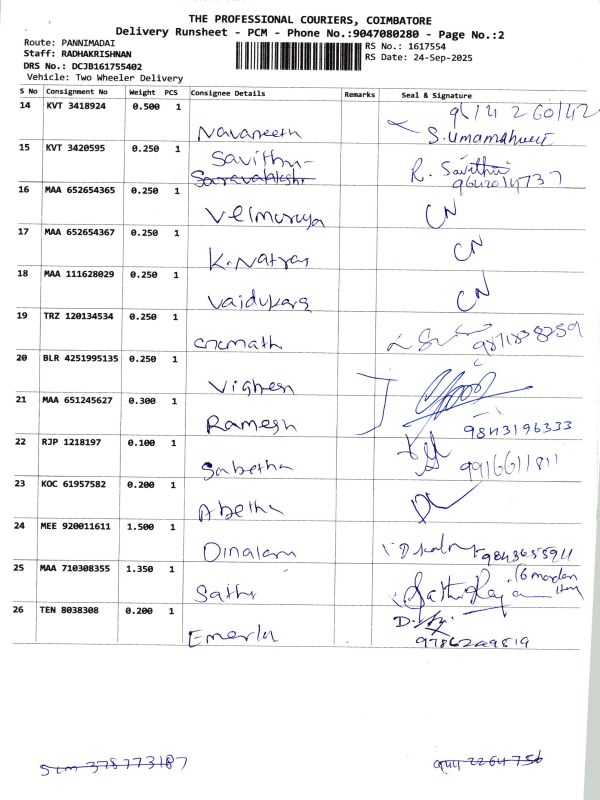 THE PROFESSIONAL COURIERS, COIMBATORE
Delivery Runsheet - PCM - Phone No.:9047080280 - Page No.:2
Route: PANNIMADAI
RS No.: 1617554
Staff: RADHAKRISHNAN
RS Date: 24-Sep-2025
DRS No.: DCJB161755402
Vehicle: Two Wheeler Delivery
S No Consignment No Weight PCS Consignee Details Remarks Seal & Signature
14 KVT 3418924 0.500 1
Navaneeth S.Umamahweri
15 KVT 3420595 0.250 1
Savithri R. Savithri
16 MAA 652654365 0.250 1
Velmuruga CN
17 MAA 652654367 0.250 1
K.Natraj CN
18 MAA 111628029 0.250 1
CN
19 TRZ 120134534 0.250 1
20 BLR 4251995135 0.250 1
Vighesh
21 MAA 651245627 0.300 1
Ramesh 9843196333
22 RJP 1218197 0.100 1
Sabetha 9916611811
23 KOC 61957582 0.200 1
Abetha
24 MEE 920011611 1.500 1
Dinalam
25 MAA 710308355 1.350 1
Sathi
26 TEN 8038308 0.200 1
9786249819